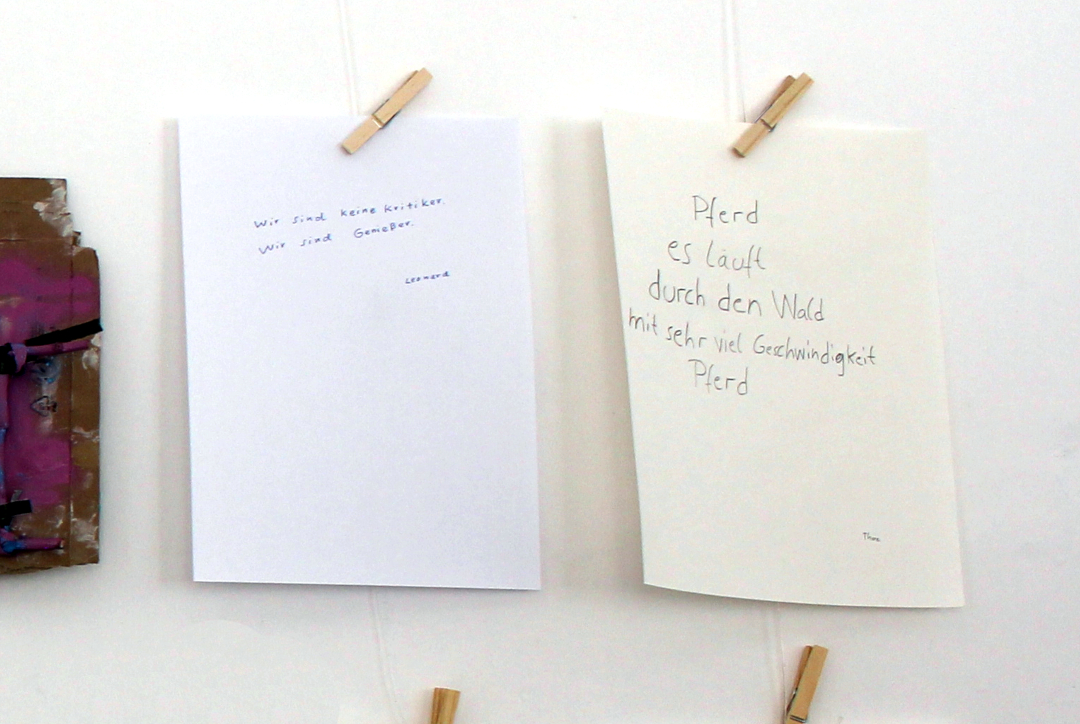 Wir sind keine Kritiker.
Wir sind Genießer.
Leonard
Pferd
es läuft
durch den Wald
mit sehr viel Geschwindigkeit
Pferd